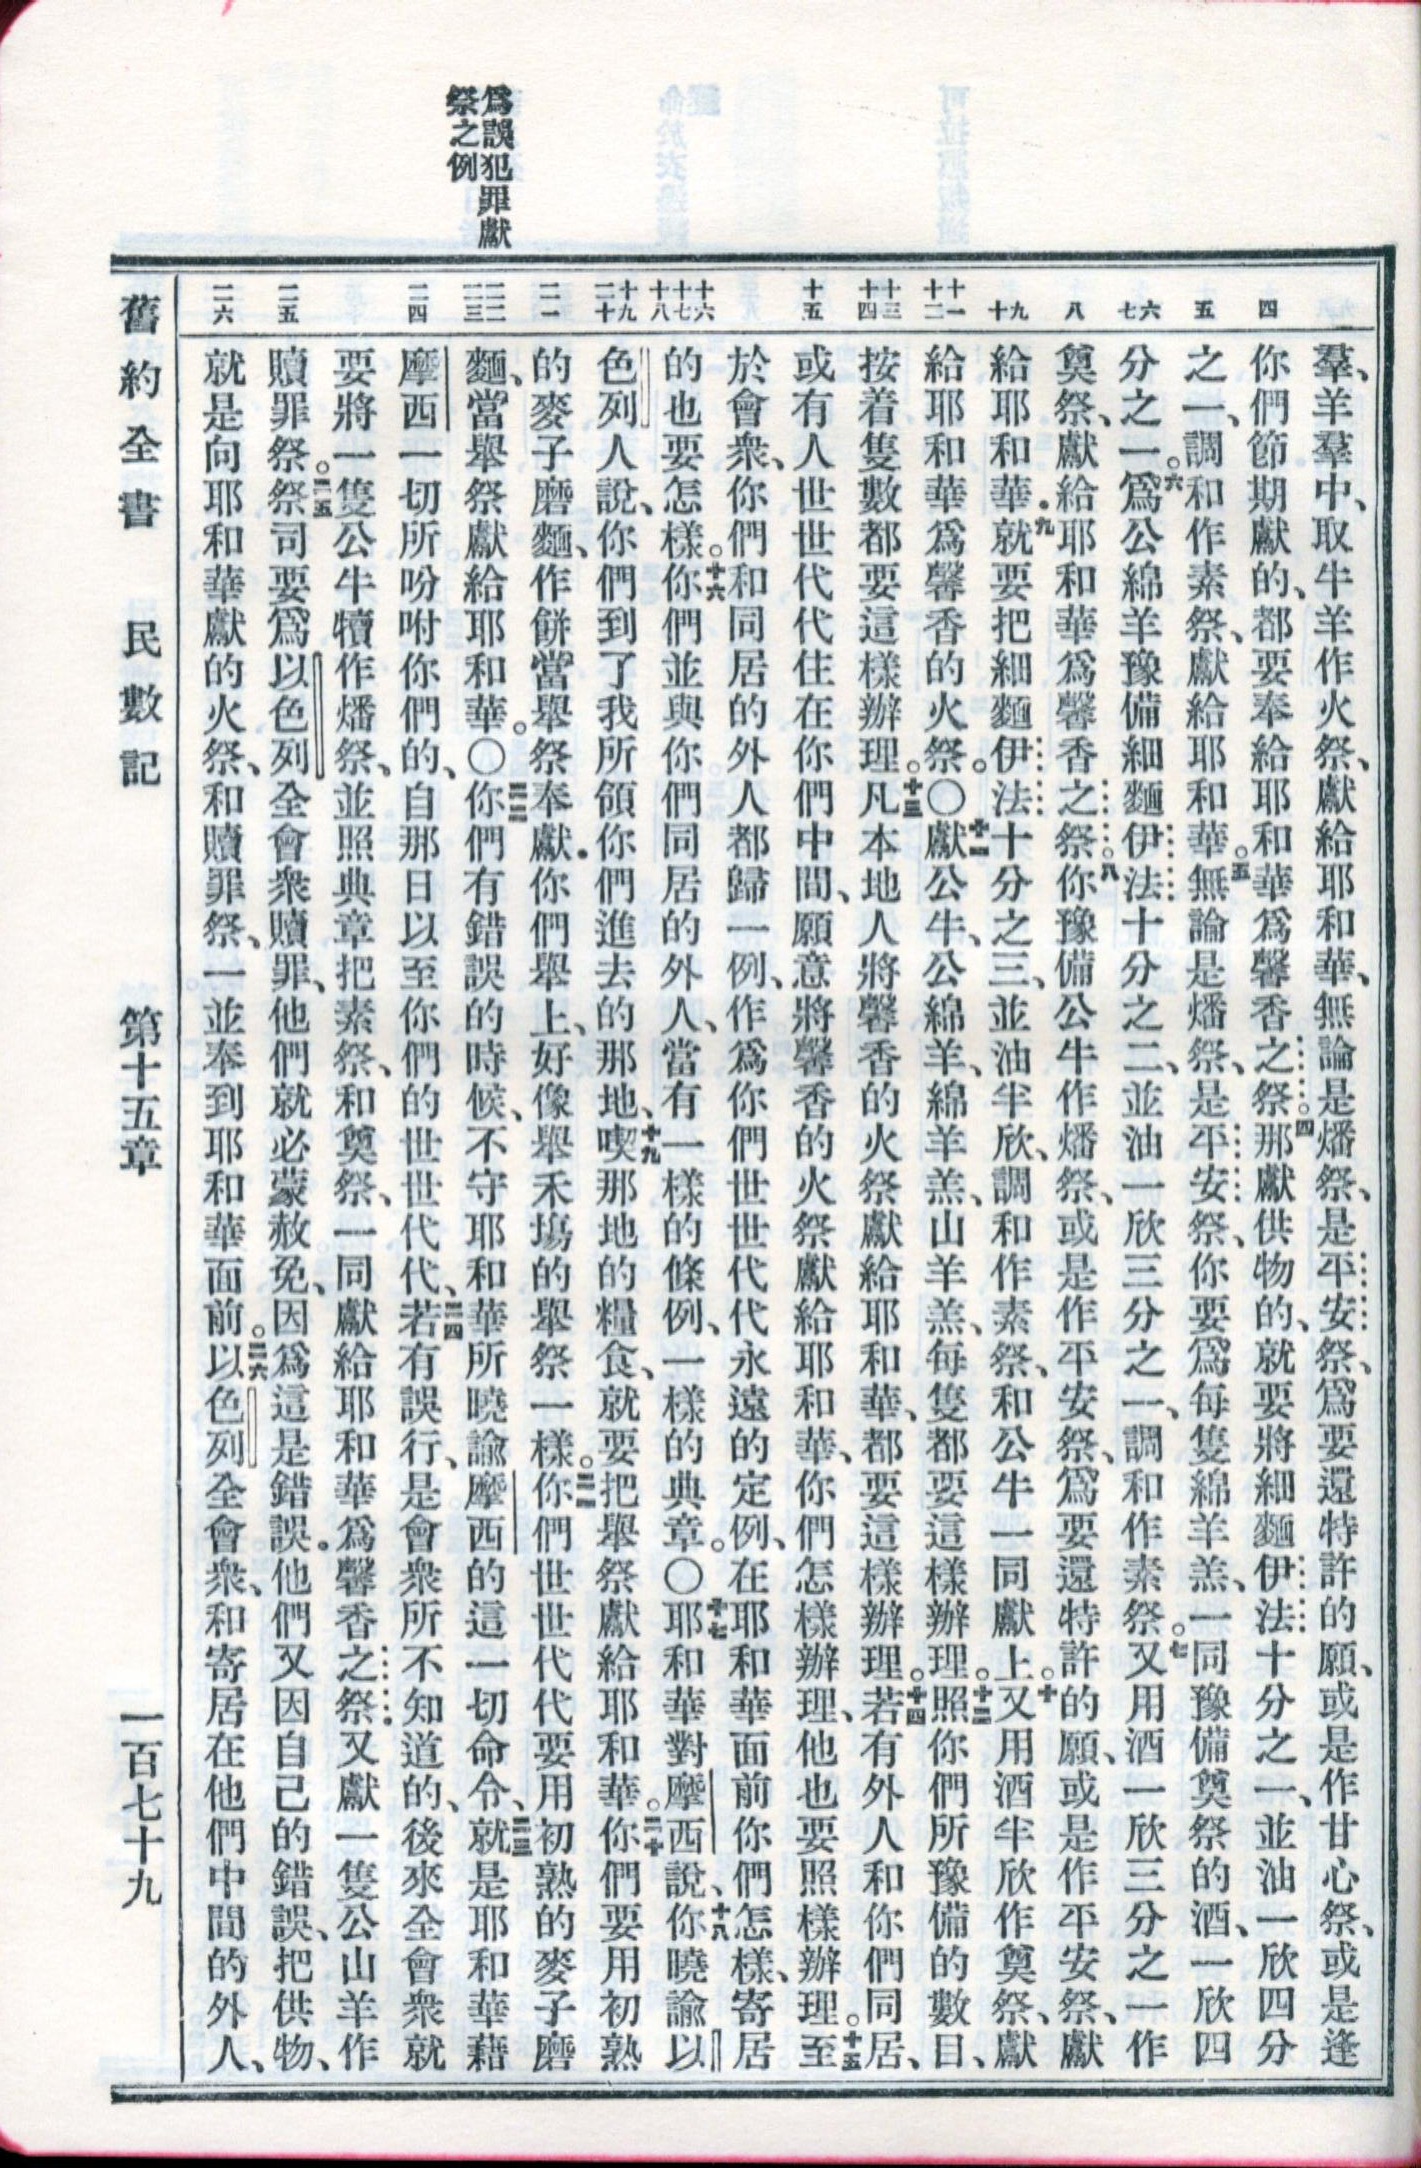 爲誤犯罪獻
祭之例
四
五
六
七
八
九
十
十一
十二
十三
十四
十五
十六
十七
十八
十九
二十
二一
二二
二三
二四
二五
二六
羣、羊羣中、取牛羊作火祭、獻給耶和華、無論是燔祭、是平安祭、爲要還特許的願、或是作甘心祭、或是逢
你們節期獻的、都要奉給耶和華爲馨香之祭。四那獻供物的、就要將細麵伊法十分之一、並油一欣四分
之一、調和作素祭、獻給耶和華。五無論是燔祭、是平安祭、你要爲每隻綿羊羔、一同豫備奠祭的酒、一欣四
分之一。六爲公綿羊豫備細麵伊法十分之二、並油一欣三分之一、調和作素祭。七又用酒一欣三分之一作
奠祭、獻給耶和華爲馨香之祭。八你豫備公牛作燔祭、或是作平安祭、爲要還特許的願、或是作平安祭、獻
給耶和華.九就要把細麵伊法十分之三、並油半欣、調和作素祭、和公牛一同獻上。十又用酒半欣作奠祭、獻
給耶和華爲馨香的火祭。〇十一獻公牛、公綿羊、綿羊羔、山羊羔、每隻都要這樣辦理。十二照你們所豫備的數目、
按着隻數都要這樣辦理。十三凡本地人將馨香的火祭獻給耶和華、都要這樣辦理。十四若有外人和你們同居、
或有人世世代代住在你們中間、願意將馨香的火祭獻給耶和華、你們怎樣辦理、他也要照樣辦理。十五至
於會衆、你們和同居的外人都歸一例、作爲你們世世代代永遠的定例、在耶和華面前你們怎樣、寄居
的也要怎樣。十六你們並與你們同居的外人、當有一樣的條例、一樣的典章。〇十七耶和華對摩西說、十八你曉諭以
色列人說、你們到了我所領你們進去的那地、十九喫那地的糧食、就要把舉祭獻給耶和華。二十你們要用初熟
的麥子磨麵、作餅當舉祭奉獻.你們舉上、好像舉禾場的舉祭一樣。二一你們世世代代要用初熟的麥子磨
麵、當舉祭獻給耶和華。〇二二你們有錯誤的時候、不守耶和華所曉諭摩西的這一切命令、二三就是耶和華藉
摩西一切所吩咐你們的、自那日以至你們的世世代代、二四若有誤行、是會衆所不知道的、後來全會衆就
要將一隻公牛犢作燔祭、並照典章把素祭、和奠祭、一同獻給耶和華爲馨香之祭.又獻一隻公山羊作
贖罪祭。二五祭司要爲以色列全會衆贖罪、他們就必蒙赦免、因爲這是錯誤.他們又因自己的錯誤、把供物、
就是向耶和華獻的火祭、和贖罪祭、一並奉到耶和華面前。二六以色列全會衆、和寄居在他們中間的外人、
舊約全書 民數記 第十五章 一百七十九